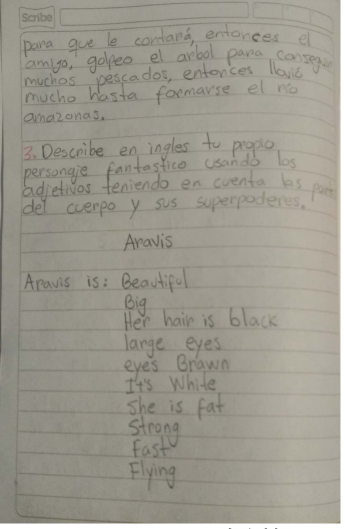 Scribe
para que le contará, entonces el
amigo, golpeo el arbol para conseguir
muchos pescados, entonces llovió
mucho hasta formarse el rio
amazonas.
3. Describe en ingles tu propio
personaje fantastico usando los
adjetivos teniendo en cuenta las
del cuerpo y sus superpoderes.
Aravis
Aravis is: Beautiful
Big
Her hair is black
large eyes
eyes Brawn
It's White
she is fat
Strong
Fast
Flying